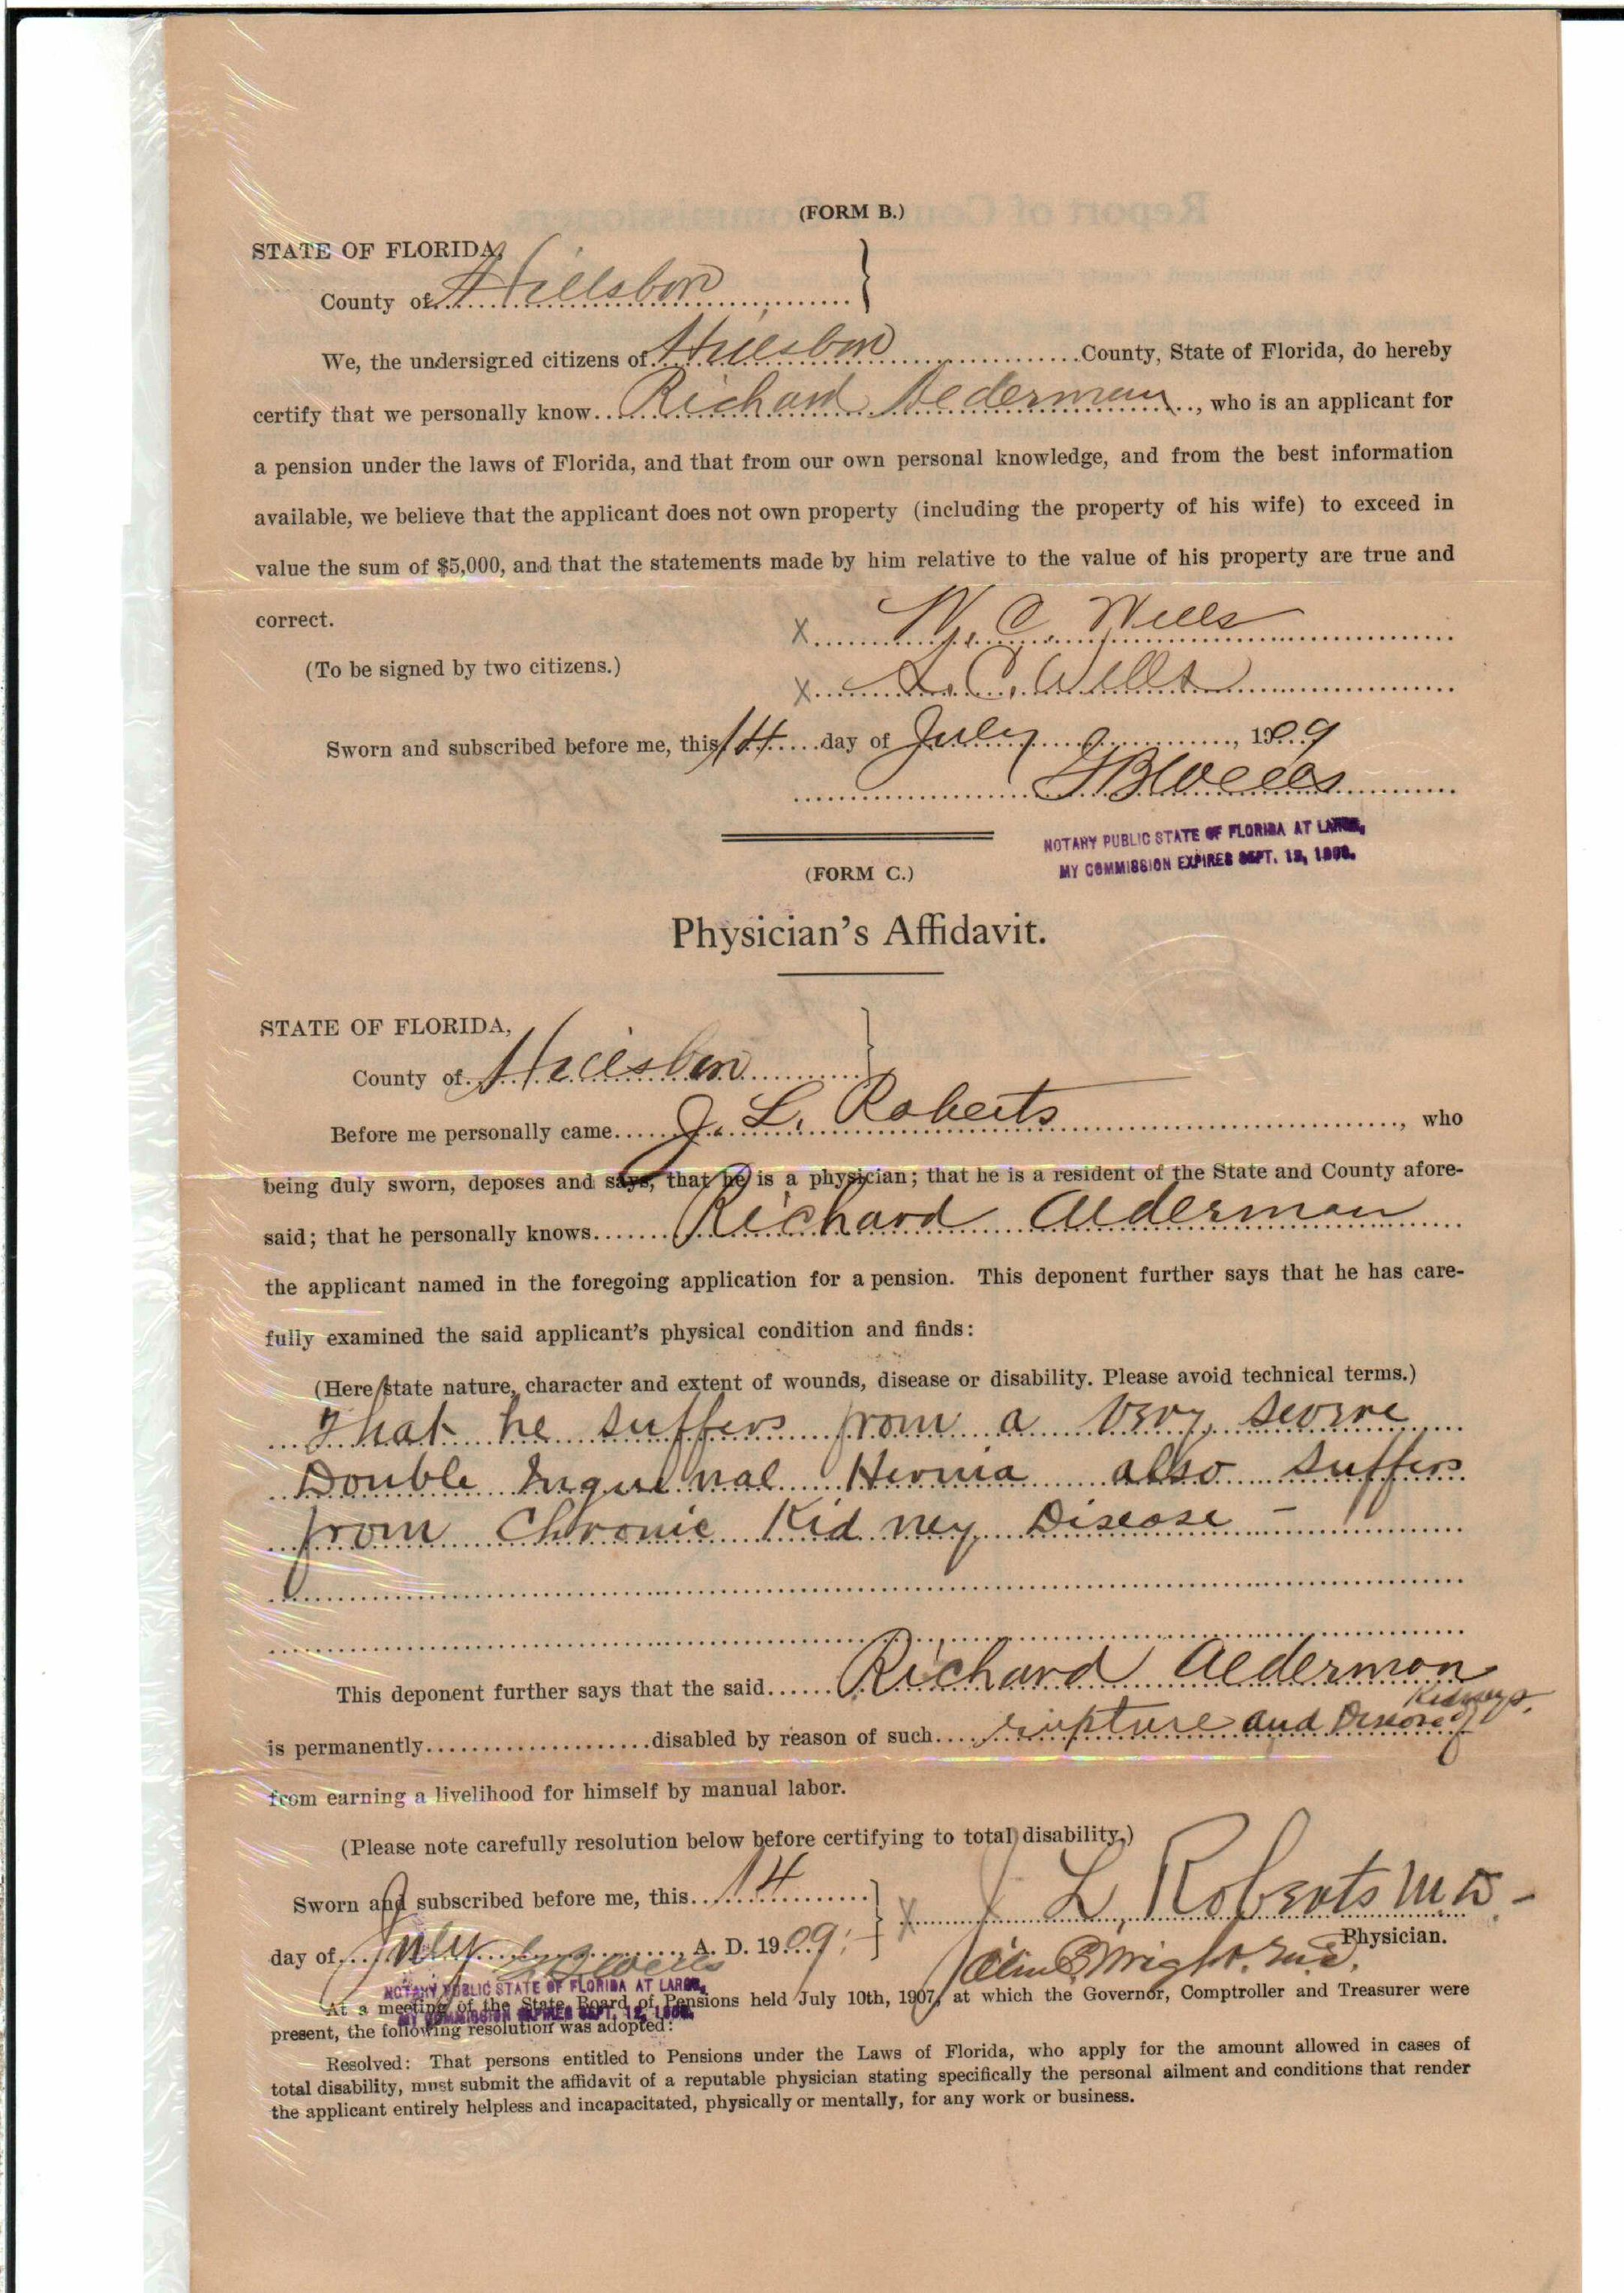 (FORM B.)
STATE OF FLORIDA,
County of Hillsboro }
We, the undersigned citizens of Hillsboro County, State of Florida, do hereby
certify that we personally know Richard Alderman, who is an applicant for
a pension under the laws of Florida, and that from our own personal knowledge, and from the best information
available, we believe that the applicant does not own property (including the property of his wife) to exceed in
value the sum of $5,000, and that the statements made by him relative to the value of his property are true and
correct.
X W. C. Wells
(To be signed by two citizens.)
X L. C. Wells
Sworn and subscribed before me, this 14 day of July, 1909
Wells
NOTARY PUBLIC STATE OF FLORIDA AT LARGE,
MY COMMISSION EXPIRES SEPT. 12,
(FORM C.)
Physician's Affidavit.
STATE OF FLORIDA,
County of Hillsboro }
Before me personally came J. L. Roberts, who
being duly sworn, deposes and says, that he is a physician; that he is a resident of the State and County afore-
said; that he personally knows Richard Alderman
the applicant named in the foregoing application for a pension. This deponent further says that he has care-
fully examined the said applicant's physical condition and finds:
(Here state nature, character and extent of wounds, disease or disability. Please avoid technical terms.)
That he suffers from a very severe
Double Inguinal Hernia also suffers
from Chronic Kidney Disease -
This deponent further says that the said Richard Alderman
is permanently disabled by reason of such rupture and Disease of Kidneys.
from earning a livelihood for himself by manual labor.
(Please note carefully resolution below before certifying to total disability.)
Sworn and subscribed before me, this 14 } X J L. Roberts M.D. -
day of July A. D. 1909. Physician.
Wells Wright M.D.
NOTARY PUBLIC STATE OF FLORIDA AT LARGE,
MY COMMISSION EXPIRES SEPT. 12,
At a meeting of the State Board of Pensions held July 10th, 1907, at which the Governor, Comptroller and Treasurer were
present, the following resolution was adopted:
Resolved: That persons entitled to Pensions under the Laws of Florida, who apply for the amount allowed in cases of
total disability, must submit the affidavit of a reputable physician stating specifically the personal ailment and conditions that render
the applicant entirely helpless and incapacitated, physically or mentally, for any work or business.